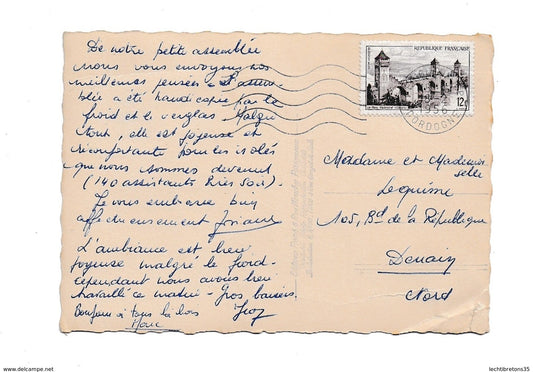 De notre petite assemblée
nous vous envoyons nos
meilleures pensées - L'assem
blée a été handicapée par le
froid et le verglas. Malgré
tout, elle est joyeuse et
réconfortante pour les isolés
que nous sommes devenus
(140 assistants très
Je vous embrasse bien
affectueusement Josiane
L'ambiance est bien
joyeuse malgré le froid -
cependant nous avons bien
travaillé ce matin - Gros baisers.
Bonjour à tous là-bas
REPUBLIQUE FRANÇAISE
12F
DORDOGNE
Madame et Mademoi
selle
Lequime
105, Bd de la République
Denain
Nord
www.delcampe.net
lechtibretons35